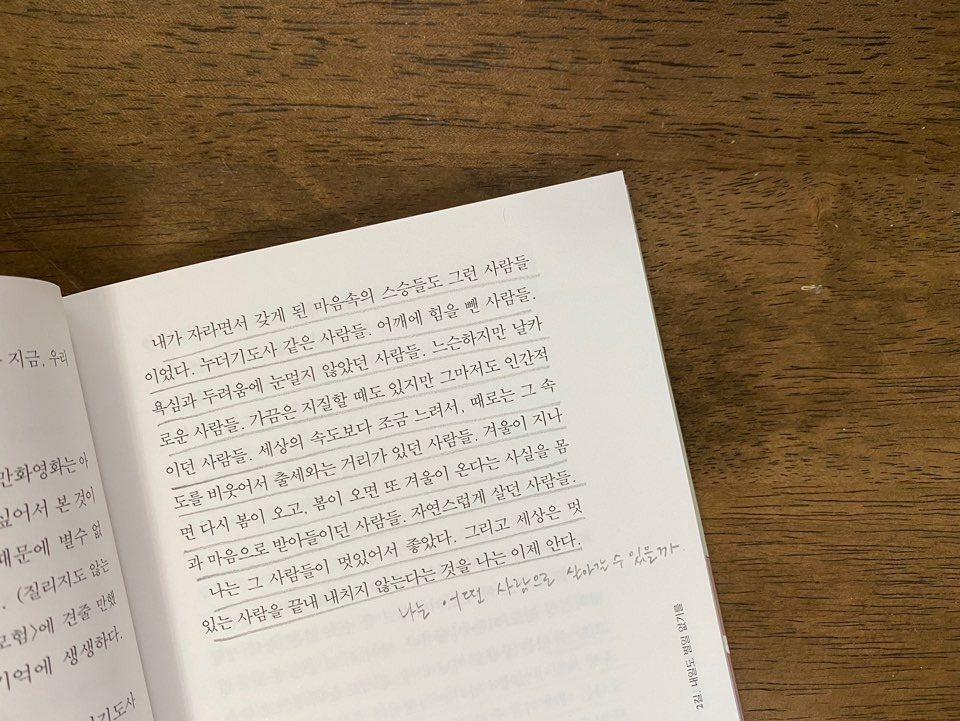 지금, 우리
만화영화는 아
싶어서 본 것이
때문에 별수 없
(질리지도 않는
모험>에 견줄 만했
기억에 생생하다.
기도사
내가 자라면서 갖게 된 마음속의 스승들도 그런 사람들
이었다. 누더기도사 같은 사람들. 어깨에 힘을 뺀 사람들.
욕심과 두려움에 눈멀지 않았던 사람들. 느슨하지만 날카
로운 사람들. 가끔은 지질할 때도 있지만 그마저도 인간적
이던 사람들. 세상의 속도보다 조금 느려서, 때로는 그 속
도를 비웃어서 출세와는 거리가 있던 사람들. 겨울이 지나
면 다시 봄이 오고, 봄이 오면 또 겨울이 온다는 사실을 몸
과 마음으로 받아들이던 사람들. 자연스럽게 살던 사람들.
나는 그 사람들이 멋있어서 좋았다. 그리고 세상은 멋
있는 사람을 끝내 내치지 않는다는 것을 나는 이제 안다.
나는 어떤 사람으로 살아갈 수 있을까
2집. 내일도 별일 없기를